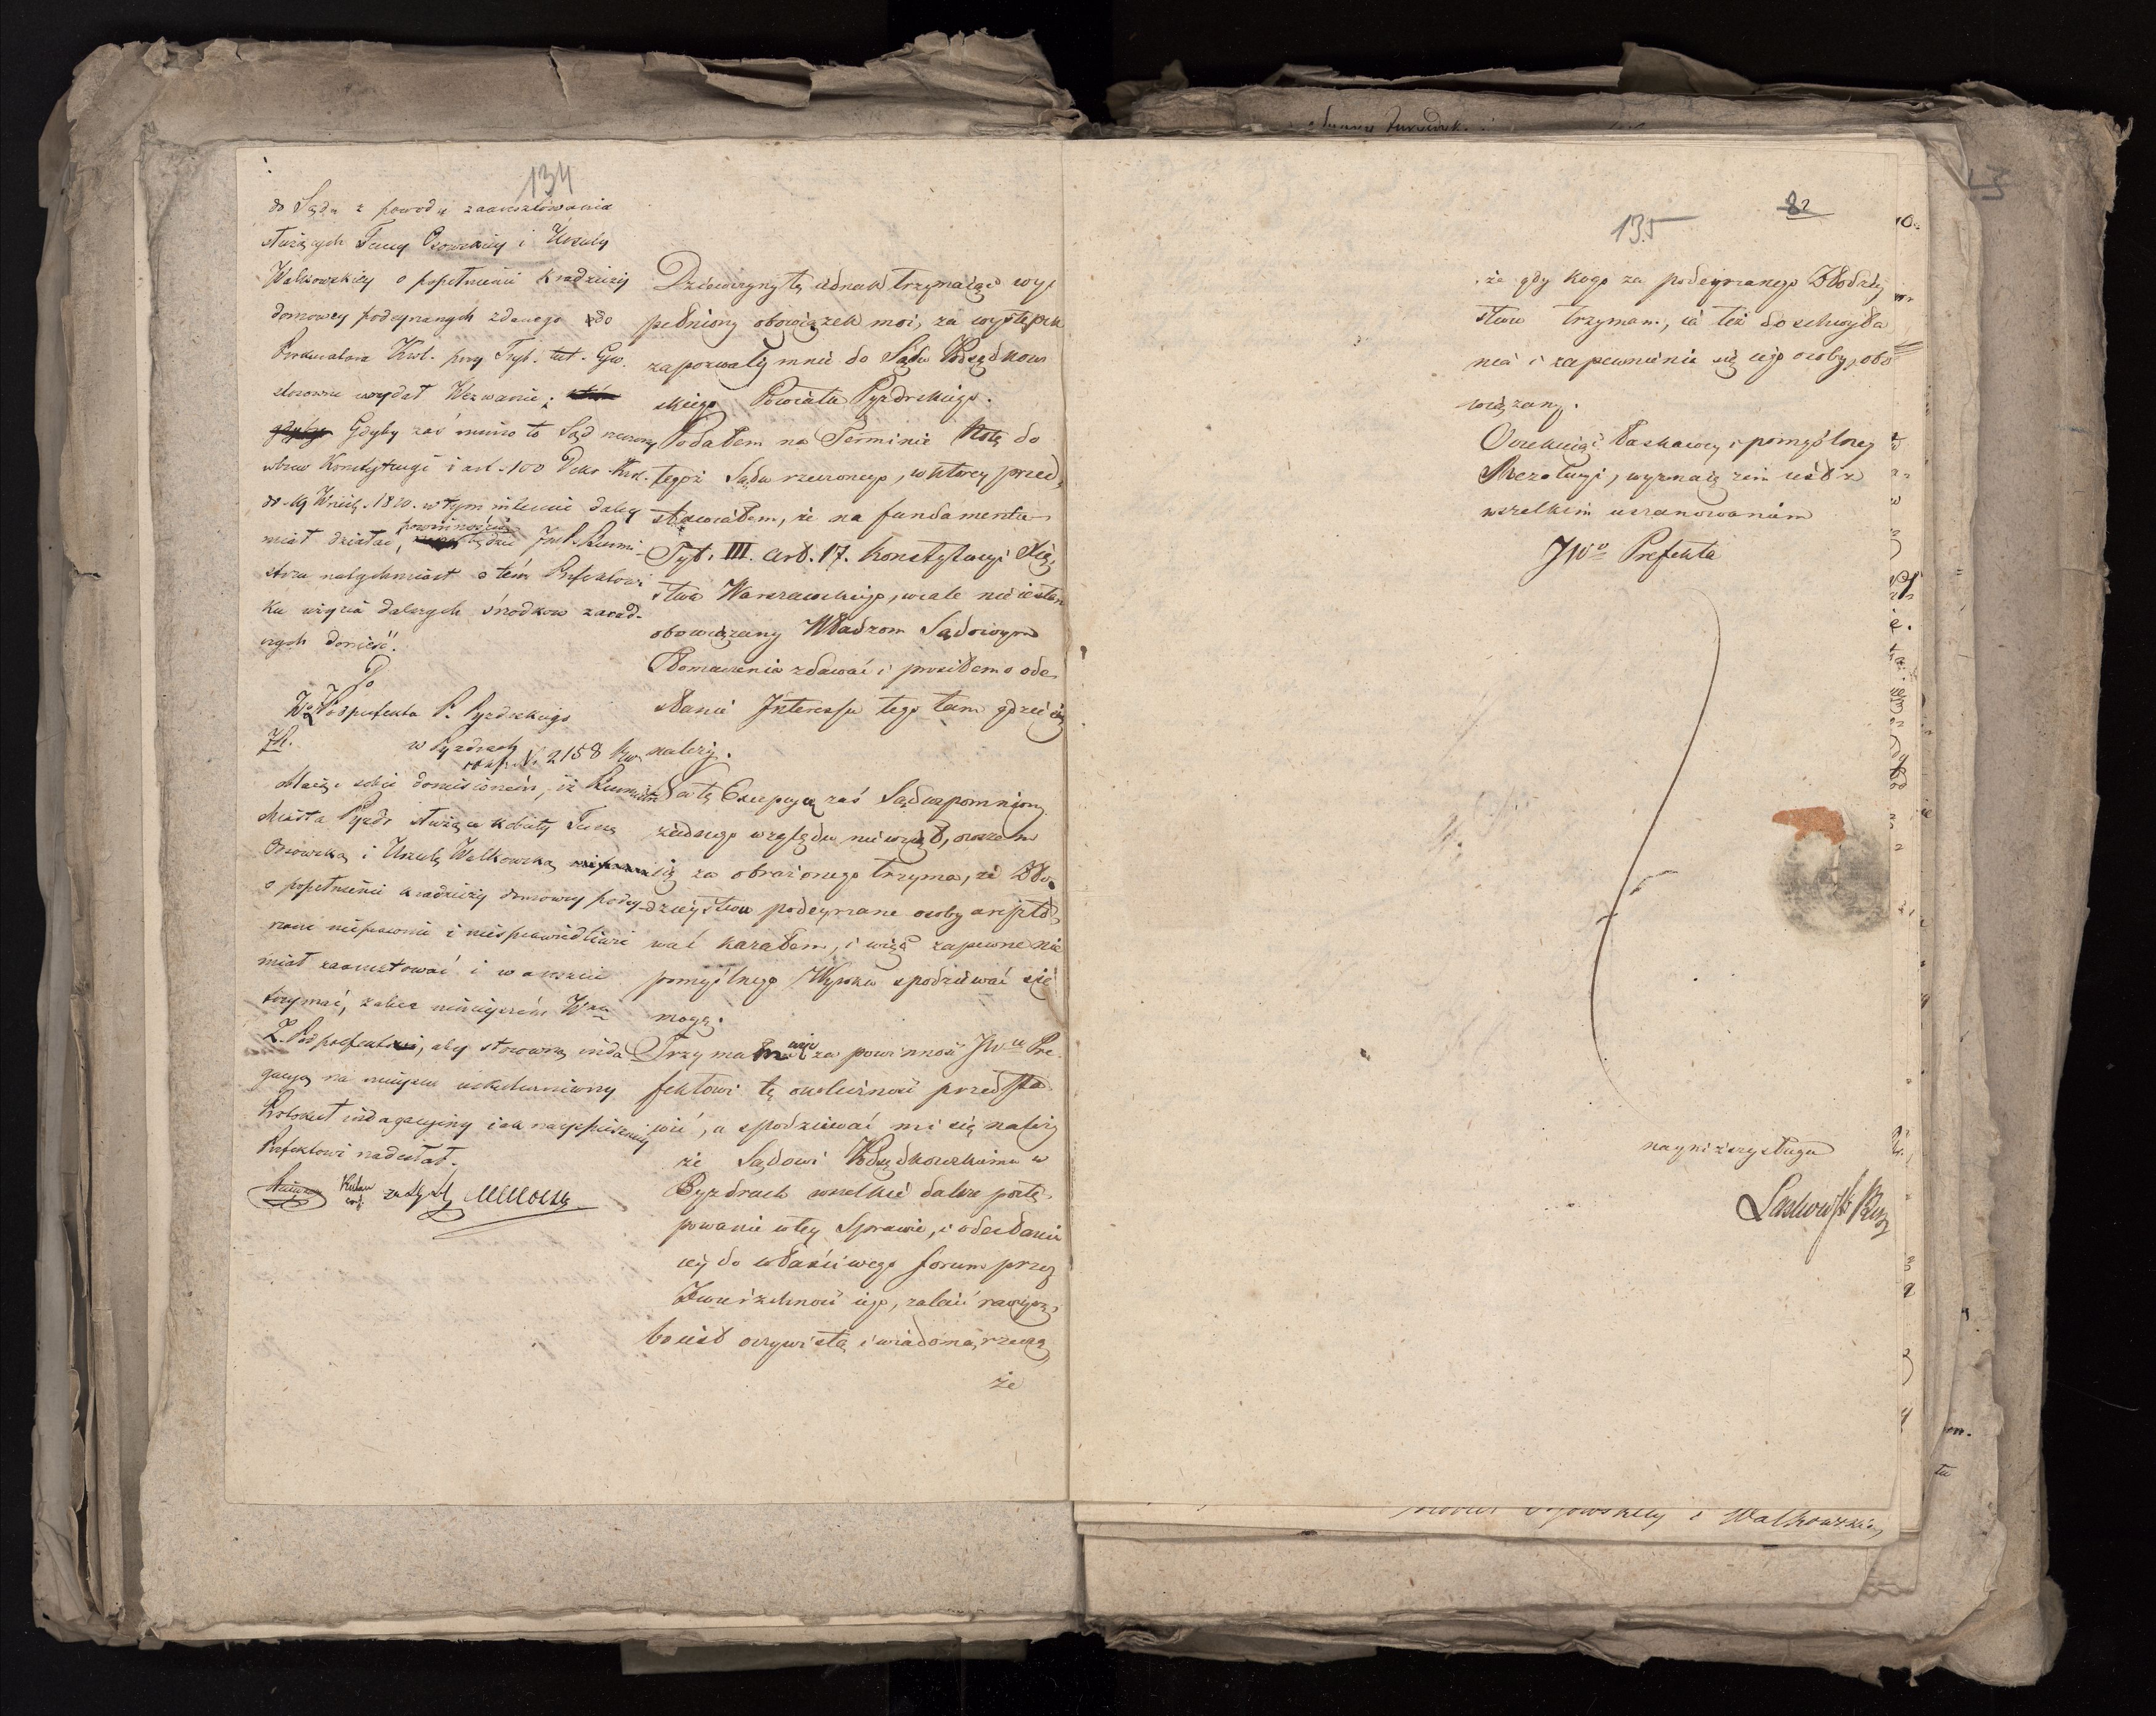 134
do Sądu z powodu zaaresztowania
służących Teressy Osowskiey i Urszuly
Walkowskiey o popełnienie kradzieży
domowey podeyrzanych zdanego do
Prokuratora Krol. przy Tryb. tut. Cyw.
stosowne wydał Wezwanie;
Gdyby zaś mimo to Sąd rzeczony
wbrew Konstytucyi i art. 100 Dekr. Krol.
do 19 Wrześ. 1810. w tym mieyscu daley
miał działać, powinnością będzie Burmi-
strza natychmiast o tém Prefektowi
ku użycia dalszych środkow zarad-
czych donieść.
Do
W. Podprefekta P. Pyzdrskiego
w Pyzdrach
N. 2158
Maiąc sobie doniesioném, iż Burmistrz
Miasta Pyzdr służące kobiety Teressę
Osowską i Urszulę Walkowską
o popełnienie kradzieży domowey podey-
rzane nieprawnie i niesprawiedliwie
miał zaaresztować i w areszcie
trzymać, zaleca ninieyszém
Z. Podprefektowi, aby stosowną inda
gacyą na mieyscu uskuteczniwszy
Protokuł indagacyiny iak nayspieszniey
Prefektowi nadesłał.
Dziewczynę tę iednak trzymaiąc wy
pełniony obowiązek moi, za występek
zapozwały mnie do Sądu Podsędkow
skiego Powiatu Pyzdrskiego.
Podałem na Terminie Notę do
tegoż Sądu rzeczonego, w ktorey przed
stawiałem, że na fundamencie
Tyt. III. Art. 17. Konstytucyi Xię
stwa Warszawskiego, wcale nie iestem
obowiązany Władzom Sądowym
tłomaczenia zdawać i prosiłem o ode
słanie Interessu tego tam gdzie się
należy.
Na tę Excepcyą zaś Sąd wspomniony
żadnego względu nie wziął, owszem
ię za obrażonego trzyma, że Zło
dzieystwu podeyrzane osoby areszto
wać kazałem, i więc zapewne nie
pomyślnego Wyroku spodziewać się
mogę.
Trzymając za powinność JWu Pre
fektowi tę okoliczność przedsta
wić, a spodziewać mi się należy
że Sądowi Podsędkowskiemu w
Pyzdrach wszelkie dalsze postę
powanie w tey Sprawie, i odesłanie
iey do właściwego forum przez
Zwierzchność iego, zalecić raczysz,
bo iest oczywistą i wiadomą rzeczą
że
135
82
że gdy kogo za podeyrzanego Złodziey
stwu trzymam, ia też do schwyta
nia i zapewnienie się iego osoby, obo
wiązany.
Oczekuiąc łaskawey i pomyślney
Rezolucyi, wyznaię żem iest z
wszelkim uszanowaniem
JWo Prefekta
nayniższy sługa
i Walkowskiey